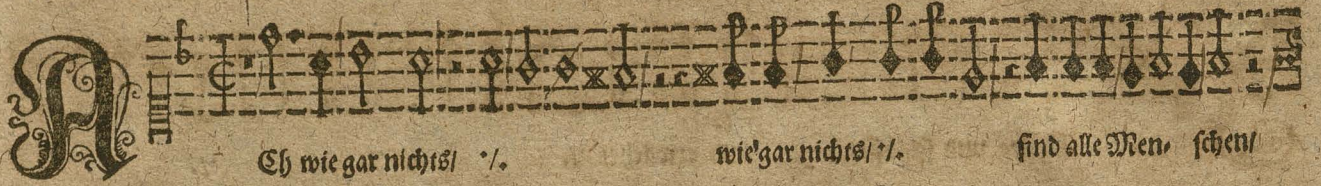 ACh wie gar nichts/ ·/. wie gar nichts/ ·/. sind alle Men- schen/